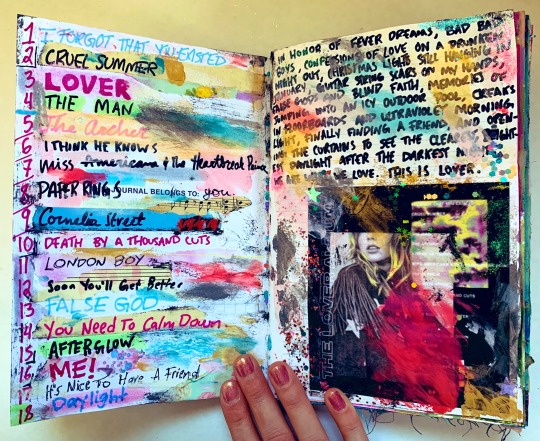 1 I FORGOT THAT YOU EXISTED
2 CRUEL SUMMER
3 LOVER
4 THE MAN
5 The Archer
6 I THINK HE KNOWS
7 Miss Americana & The Heartbreak Prince
8 PAPER RINGS JOURNAL BELONGS TO: you.
9 Cornelia Street
10 DEATH BY A THOUSAND CUTS
11 LONDON BOY
12 Soon You'll Get Better
13 FALSE GOD
14 You Need To Calm Down
15 AFTERGLOW
16 ME!
17 It's Nice To Have A Friend
18 Daylight
IN HONOR OF FEVER DREAMS, BAD BAD
BOYS, CONFESSIONS OF LOVE ON A DRUNKEN
NIGHT OUT, CHRISTMAS LIGHTS STILL HANGING IN
JANUARY, GUITAR STRING SCARS ON MY HANDS,
FALSE GODS AND BLIND FAITH, MEMORIES OF
JUMPING INTO AN ICY OUTDOOR POOL, CREAKS
IN FLOORBOARDS AND ULTRAVIOLET MORNING
LIGHT, FINALLY FINDING A FRIEND, AND OPEN-
ING THE CURTAINS TO SEE THE CLEAREST, BRIGHT-
EST DAYLIGHT AFTER THE DARKEST
WE ARE WHAT WE LOVE. THIS IS LOVER.
THE LOVER ALBUM